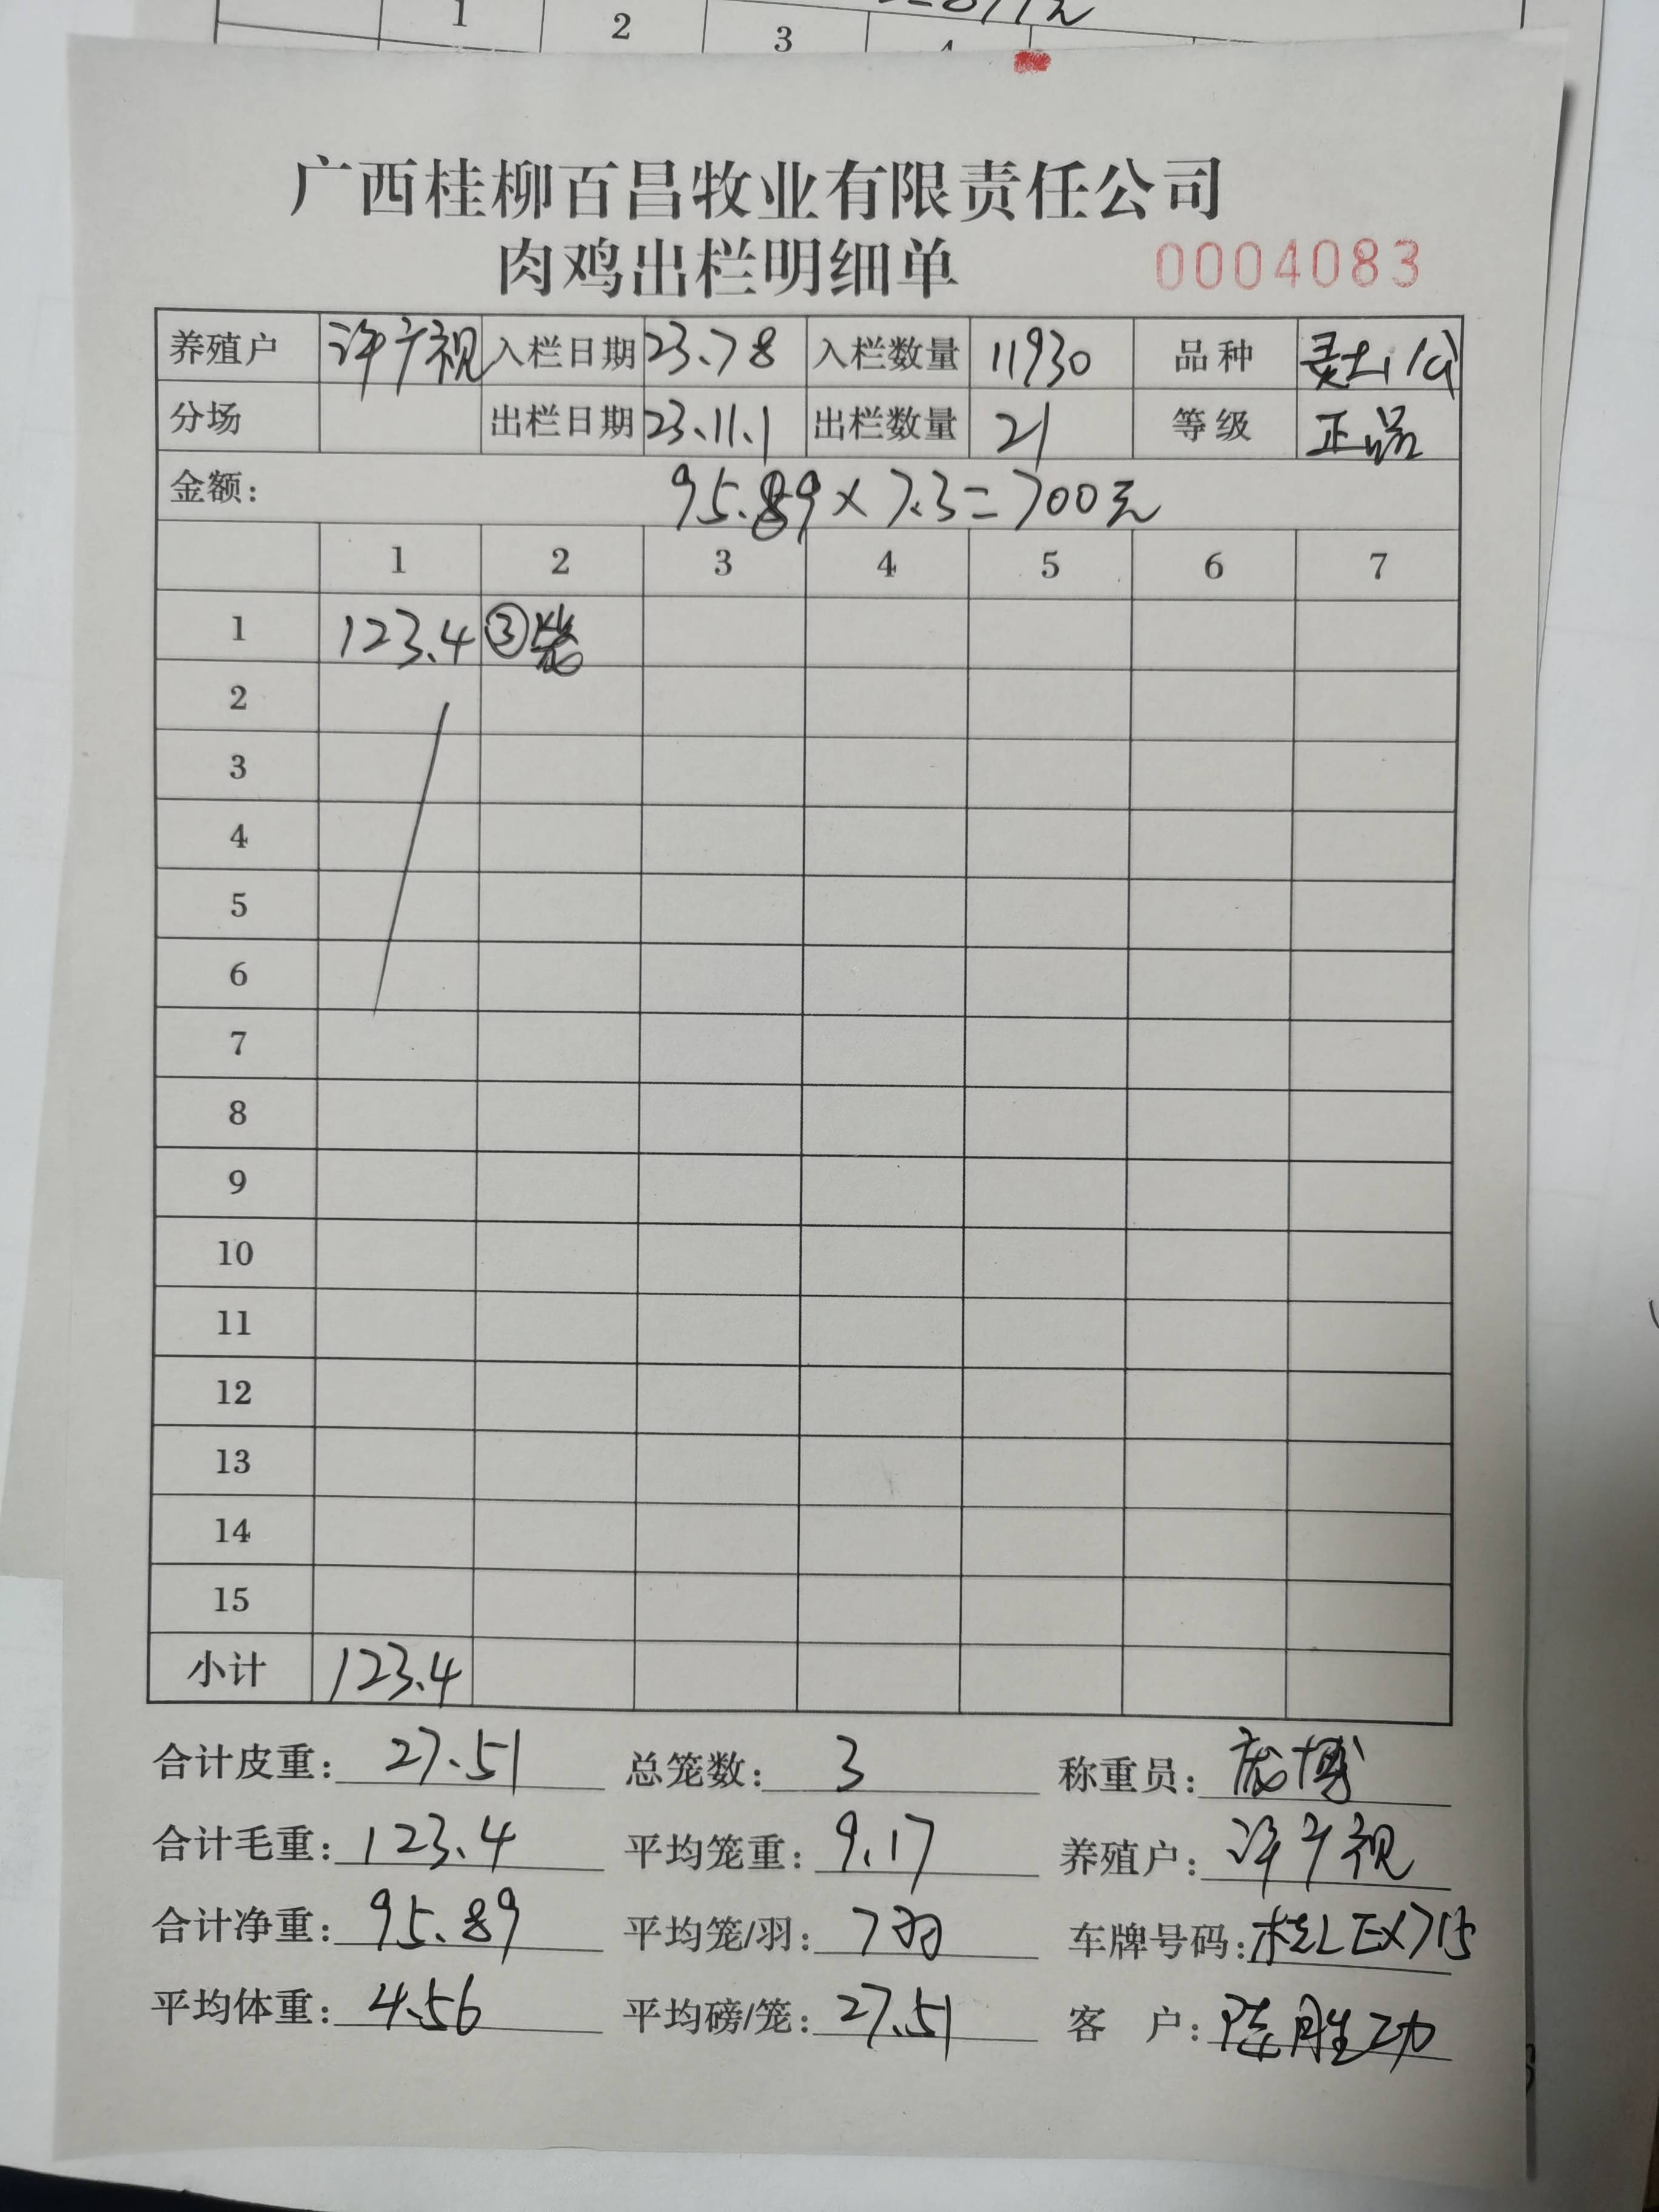 1 2 3 4
广西桂柳百昌牧业有限责任公司
肉鸡出栏明细单 0004083
养殖户 许广视 入栏日期 23.7.8 入栏数量 11930 品种 灵土1公
分场 出栏日期 23.11.1 出栏数量 21 等级 正品
金额: 95.89×7.3=700元
1 2 3 4 5 6 7
1 123.4 ③笼
2
3
4
5
6
7
8
9
10
11
12
13
14
15
小计 123.4
合计皮重: 27.51 总笼数: 3 称重员: 庞博
合计毛重: 123.4 平均笼重: 9.17 养殖户: 许广视
合计净重: 95.89 平均笼/羽: 7羽 车牌号码: 桂LEX715
平均体重: 4.56 平均磅/笼: 27.51 客户: 陈胜功